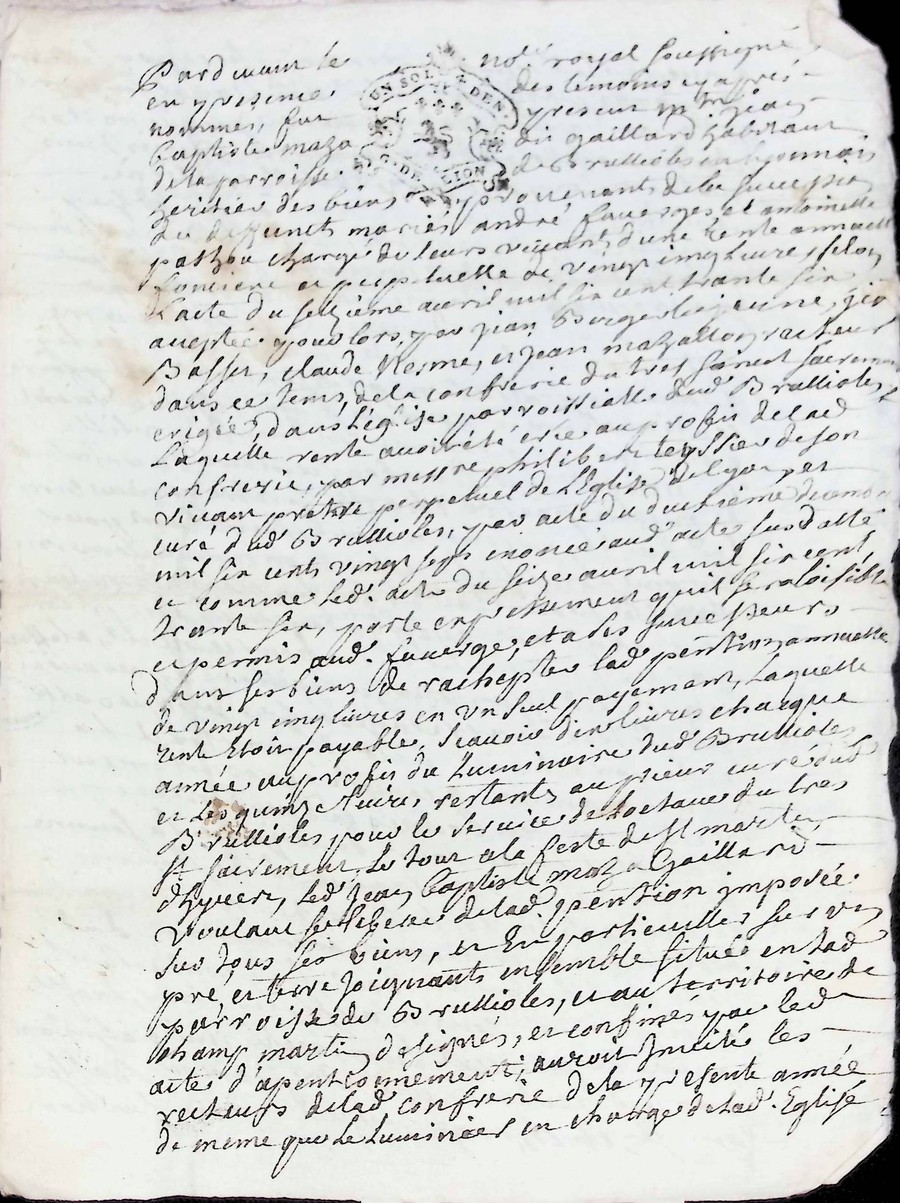 Pardevant le no.re royal soussigné
en presence des temoins cy apres
nommés, fut present sr jean
Baptiste maza dit gaillard habitant
de la parroisse de Brullioles en lyonnois
heritier des biens provenants de la succession
des deffunts mariés andré faverges et antoinette
chargé de leurs vivants d'une rente annuelle
fonciere et perpetuelle de vingt cinq livres, selon
L'acte du seizième avril mil six cent trante six
acceptée pour lors, par jean Berger le jeune,
Basset, claude Nesme, et jean mazallon recteurs
dans ce tems, de la confrerie du tres sainct sacrement
erigée, dans L'église parroissialle dud Brullioles,
Laquelle rente avoit été crée au profit de lad
confrerie, par messre philibert teyssier de son
vivant prêtre perpetuel de L'Eglise de lyon, et
curé dud Brullioles, par acte du
mil six cents vingt sept enoncé aud acte susdatté
et comme led. acte du seize avril mil six cent
trante six, porte expressement qu'il sera loisible
et permis aud. faverge, et a ses successeurs
dans ses biens de rachepter lad pention annuelle
de vingt cinq livres en un seul payement, Laquelle
rente Etoit payable, scavoir dix livres chaque
année au profit du Luminaire dud Brullioles
et Les quinze Livres restants au sieur curé dud
Brullioles pour le service de Loctave du tres
st sacrement, Le tout a la feste de st martin
d'hyver, Led. jean Baptiste maza Gaillard
Voulant se liberer de lad. pention imposée
sur tous ses biens, et En particulier sur un
pré, et terre joignants ensemble située en lad
parroisse de Brullioles, et au territoire de
champ martin designés, et confinés par led
acte d'apentionnement, auroit Invité les
recteurs de lad confrerie de la presente année
de meme que Le Luminier en charge de lad. Eglise
UN SOL DEN
G. DE LION